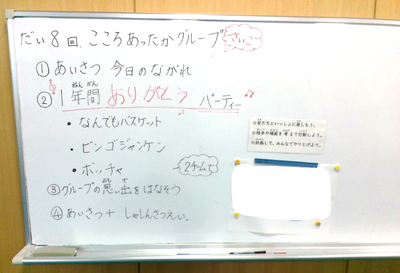 だい8回、こころあったかグループ さいご
①あいさつ、今日のながれ
②1年間ありがとうパーティー
ねんかん
・なんでもバスケット
・ビンゴジャンケン
・ボッチャ
2チームで
③グループの思い出をはなそう
おもで
④あいさつ+しゃしんさつえい。